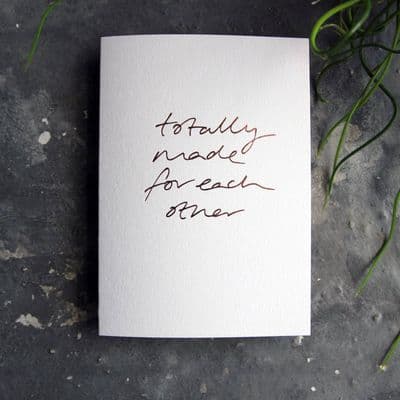 totally
made
for each
other